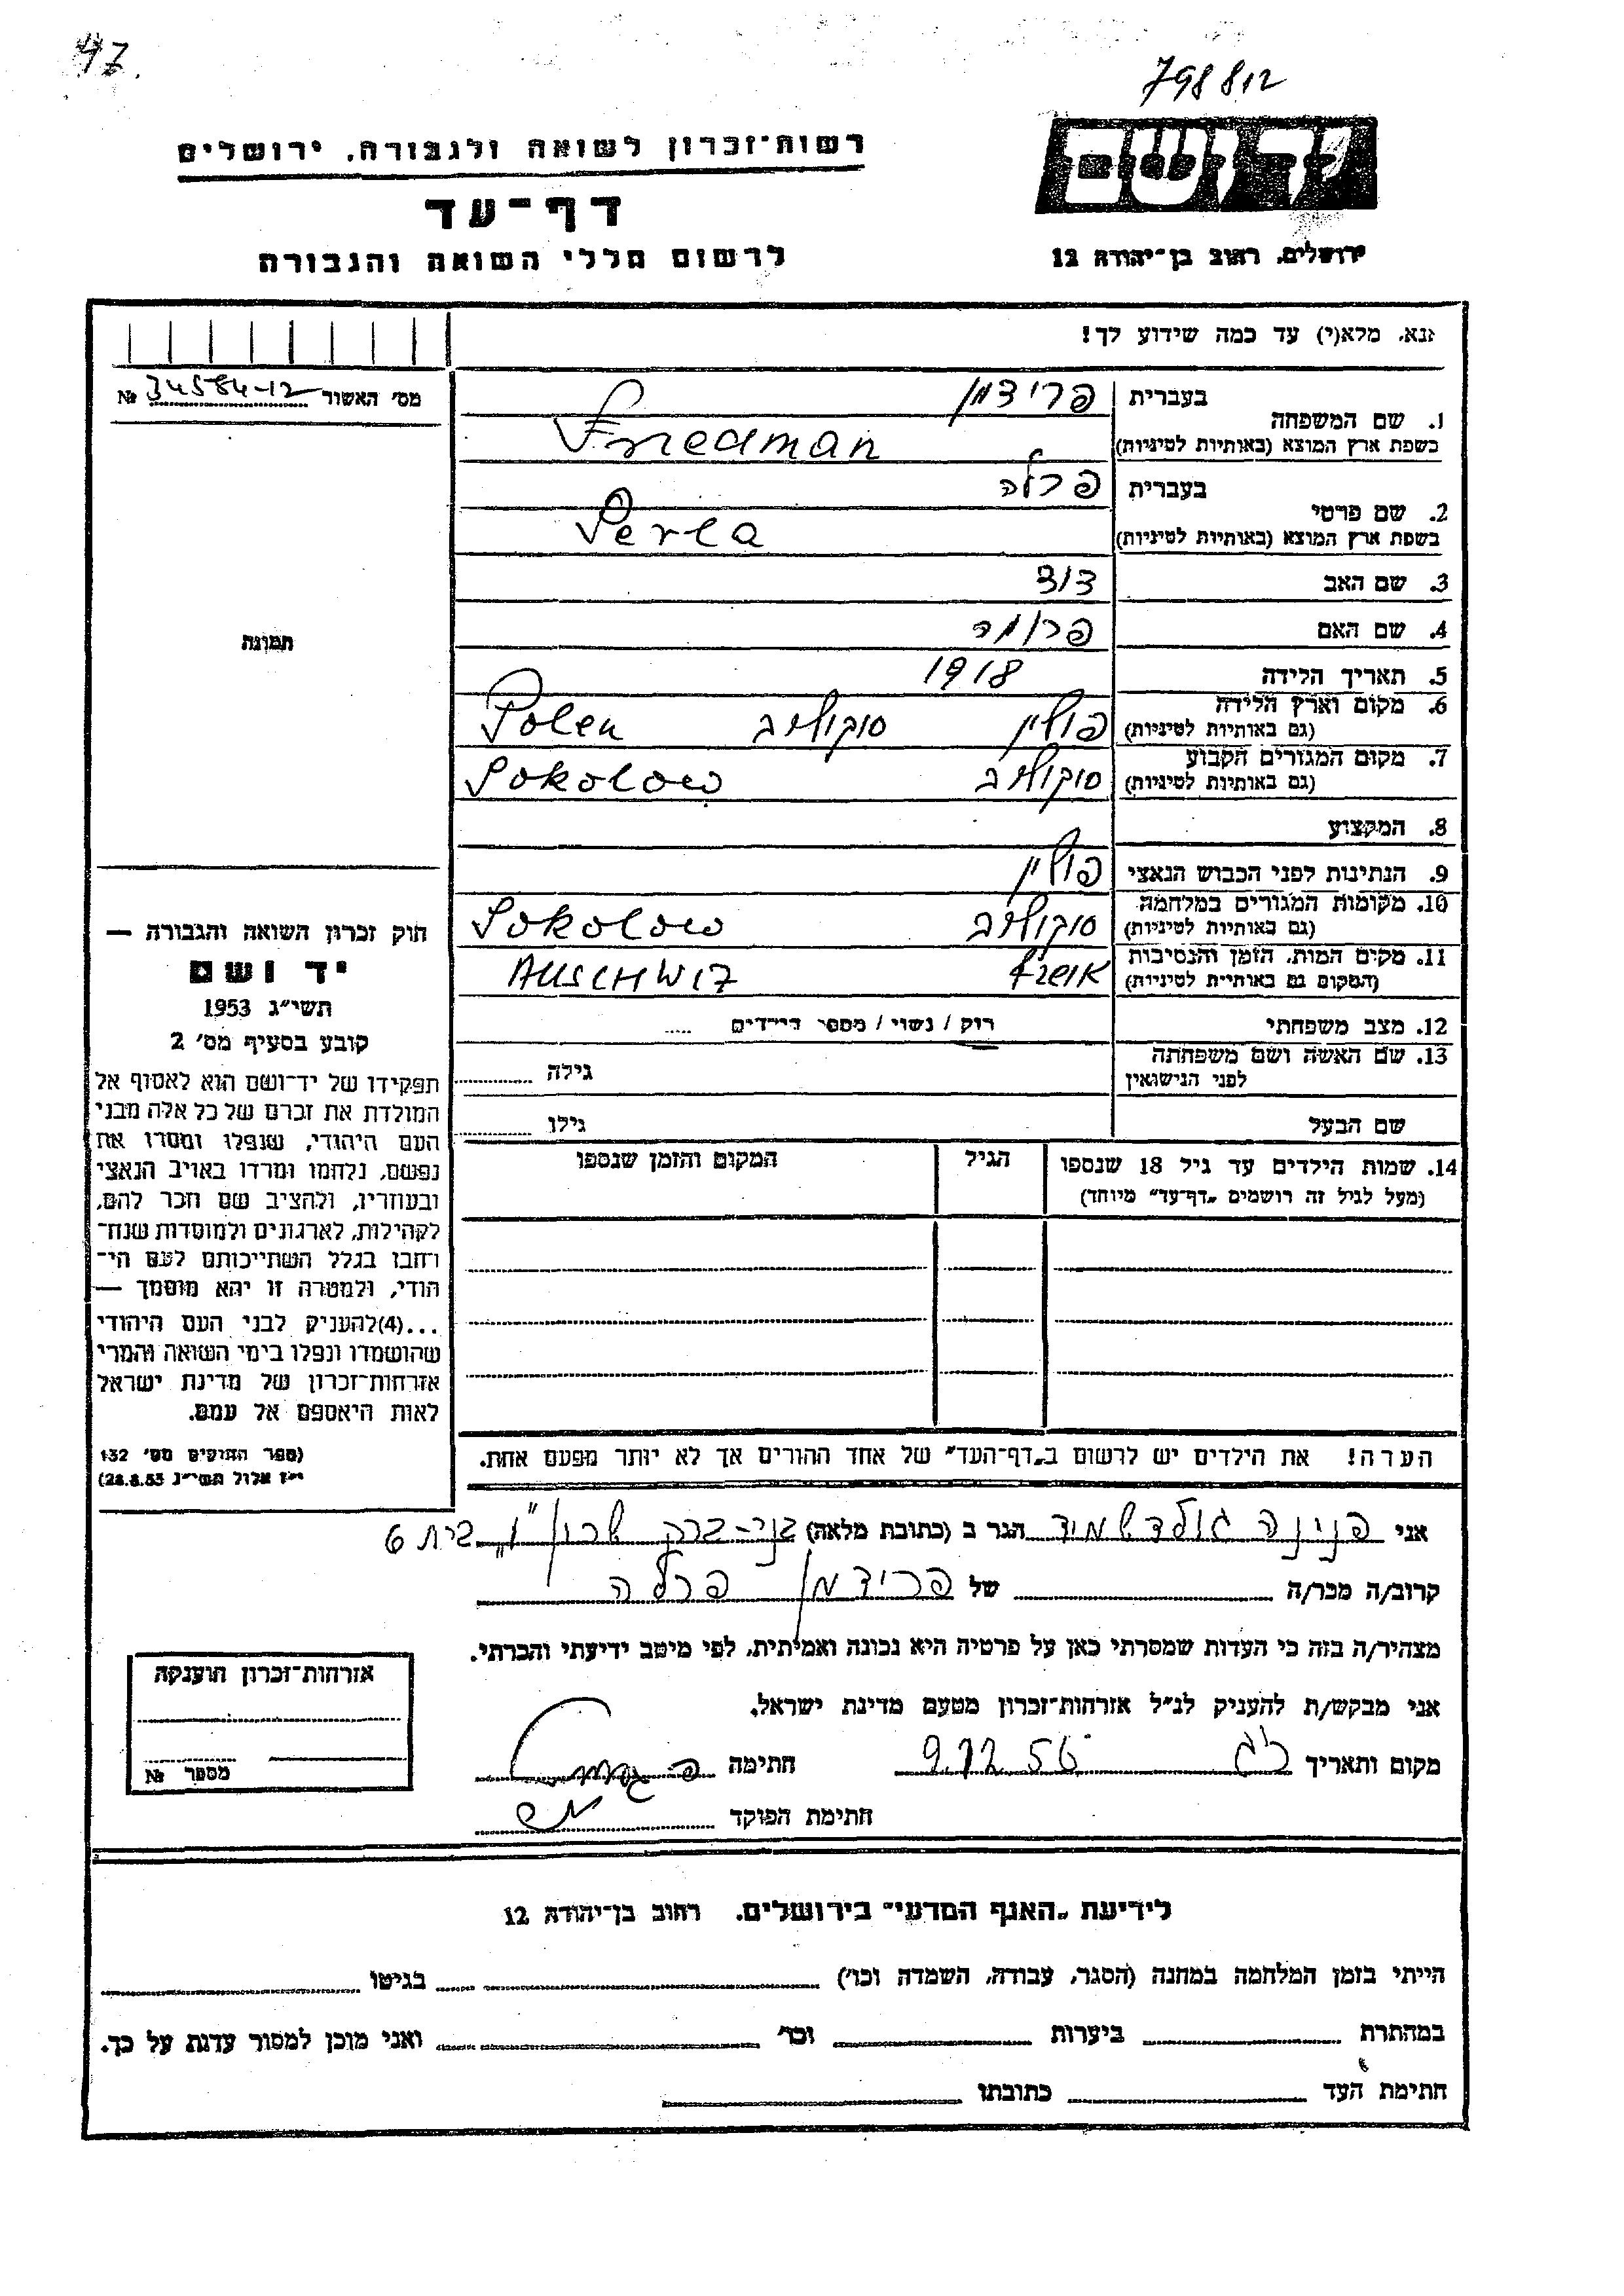 47.
798812
רשות־זכרון לשואה ולגבורה, ירושלים
יד ושם
דף־עד
לרשום חללי השואה והגבורה
ירושלים, רחוב בן־יהודה 12
נא, מלא(י) עד כמה שידוע לך!
מס׳ האשור № 34584-12
1. שם המשפחה
בעברית פרידמן
בשפת ארץ המוצא (באותיות לטיניות) Friedman
2. שם פרטי
בעברית פרלה
בשפת ארץ המוצא (באותיות לטיניות) Perla
3. שם האב דוד
4. שם האם פרומה
תמונה
5. תאריך הלידה 1918
6. מקום וארץ הלידה
(גם באותיות לטיניות) פולין סוקולוב Polen
7. מקום המגורים הקבוע
(גם באותיות לטיניות) סוקולוב Sokolow
8. המקצוע
9. הנתינות לפני הכבוש הנאצי פולין
10. מקומות המגורים במלחמה
(גם באותיות לטיניות) סוקולוב Sokolow
11. מקום המות, הזמן והנסיבות
(המקום גם באותיות לטיניות) אושויץ AUSCHWIZ
12. מצב משפחתי רוק / נשוי / מספר הילדים .....
13. שם האשה ושם משפחתה
לפני הנישואין גילה
שם הבעל גילו
14. שמות הילדים עד גיל 18 שנספו
(מעל לגיל זה רושמים „דף־עד״ מיוחד)
הגיל
המקום והזמן שנספו
חוק זכרון השואה והגבורה —
יד ושם
תשי״ג 1953
קובע בסעיף מס׳ 2
תפקידו של יד־ושם הוא לאסוף אל
המולדת את זכרם של כל אלה מבני
העם היהודי, שנפלו ומסרו את
נפשם, נלחמו ומרדו באויב הנאצי
ובעוזריו, ולהציב שם וזכר להם,
לקהילות, לארגונים ולמוסדות שנח־
רבו בגלל השתייכותם לעם הי־
הודי, ולמטרה זו יהא מוסמך —
...(4)להעניק לבני העם היהודי
שהושמדו ונפלו בימי השואה והמרי
אזרחות־זכרון של מדינת ישראל
לאות היאספם אל עמם.
(ספר החוקים מס׳ 132
י״ז אלול תשי״ג 28.8.53)
הערה! את הילדים יש לרשום ב„דף־העד״ של אחד ההורים אך לא יותר מפעם אחת.
אני פנינה גולדשמיד הגר ב (כתובת מלאה) בני-ברק שרון "ו" בית 6
קרוב/ה מכר/ה של פרידמן פרלה
מצהיר/ה בזה כי העדות שמסרתי כאן על פרטיה היא נכונה ואמיתית, לפי מיטב ידיעתי והכרתי.
אני מבקש/ת להעניק לנ״ל אזרחות־זכרון מטעם מדינת ישראל.
מקום ותאריך 9.12.56 חתימה
חתימת הפוקד
אזרחות־זכרון הוענקה
מספר №
לידיעת „האגף המדעי״ בירושלים, רחוב בן־יהודה 12
הייתי בזמן המלחמה במחנה (הסגר, עבודה, השמדה וכו׳) בגיטו
במחתרת ביערות וכו׳ ואני מוכן למסור עדות על כך.
חתימת העד כתובתו